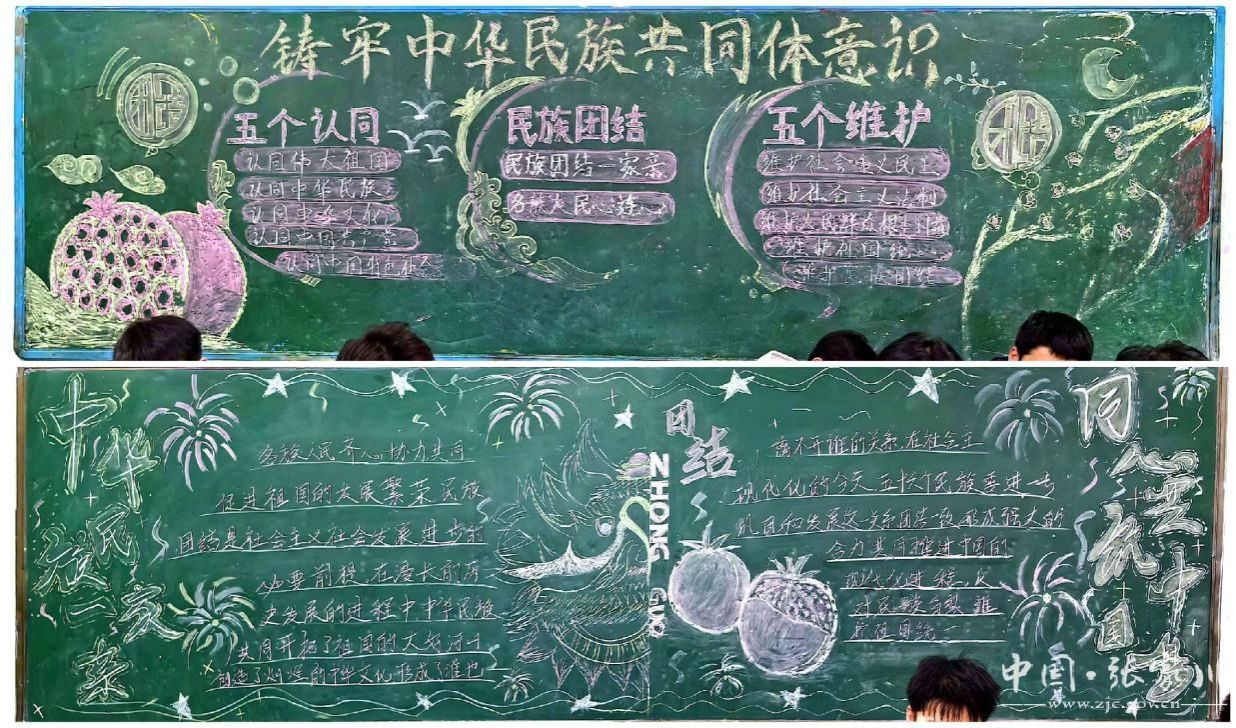 铸牢中华民族共同体意识
五个认同
认同伟大祖国
认同中华民族
认同中华文化
认同中国共产党
认同中国特色社会
民族团结
民族团结一家亲
各族人民心连心
五个维护
维护社会主义民主
维护社会主义法制
维护人民群众根本利益
维护祖国统一
维护民族团结
中华民族一家亲
各族人民齐心协力共同
促进祖国的发展繁荣民族
团结是社会主义社会发展进步的
必要前提,在漫长的历
史发展的进程中,中华民族
共同开拓了祖国的大好河山
创造了灿烂的中华文化形成了谁也
ZHONG GUO
团结
离不开谁的关系,在社会主
现代化的今天,五十六个民族要进一步
巩固和发展这一关系团结一致,形成强大的
合力共同推进中国的
现代化进程,反
对民族分裂,维
护祖国统一
同心共筑中国梦
中国·张家川
www.zjc.gov.cn